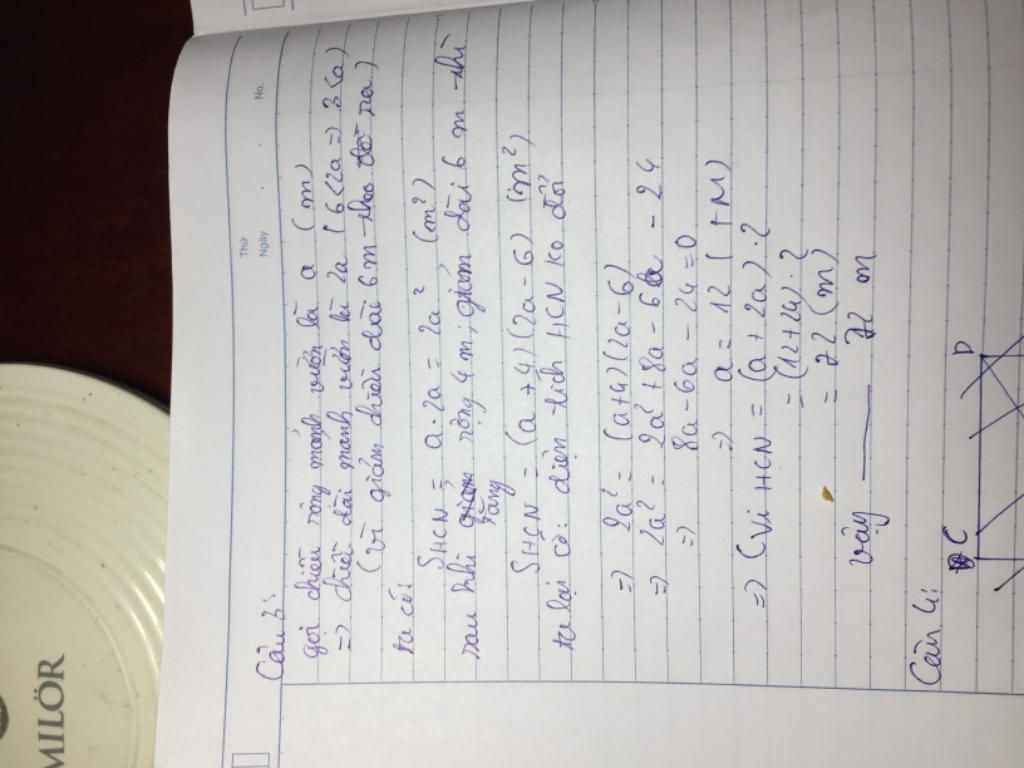 Thứ
Ngày
No.
Câu 3:
gọi chiều rộng mảnh vườn là a (m)
=> chiều dài mảnh vườn là 2a (6<2a => 3<a)
(vì giảm chiều dài 6m
ta có:
SHCN = a.2a = 2a² (m²)
sau khi tăng rộng 4m, giảm dài 6m thì
SHCN = (a+4)(2a-6) (m²)
ta lại có: diện tích HCN ko đổi
=> 2a² = (a+4)(2a-6)
=> 2a² = 2a² + 8a - 6a - 24
=> 8a - 6a - 24 = 0
=> a = 12 (TM)
=> Cvi HCN = (a + 2a).2
= (12+24).2
= 72 (m)
vậy 72 m
Câu 4:
C D
MILÖR